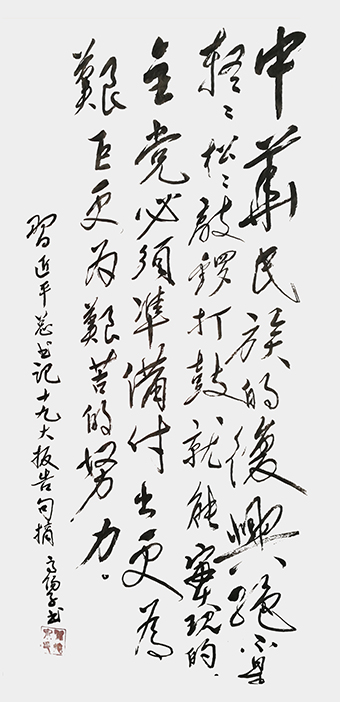 中華民族的復興絶不是
輕輕松松敲鑼打鼓就能實現的。
全党必須準備付出更為
艱巨更为艱苦的努力。
習近平总书记十九大报告句摘